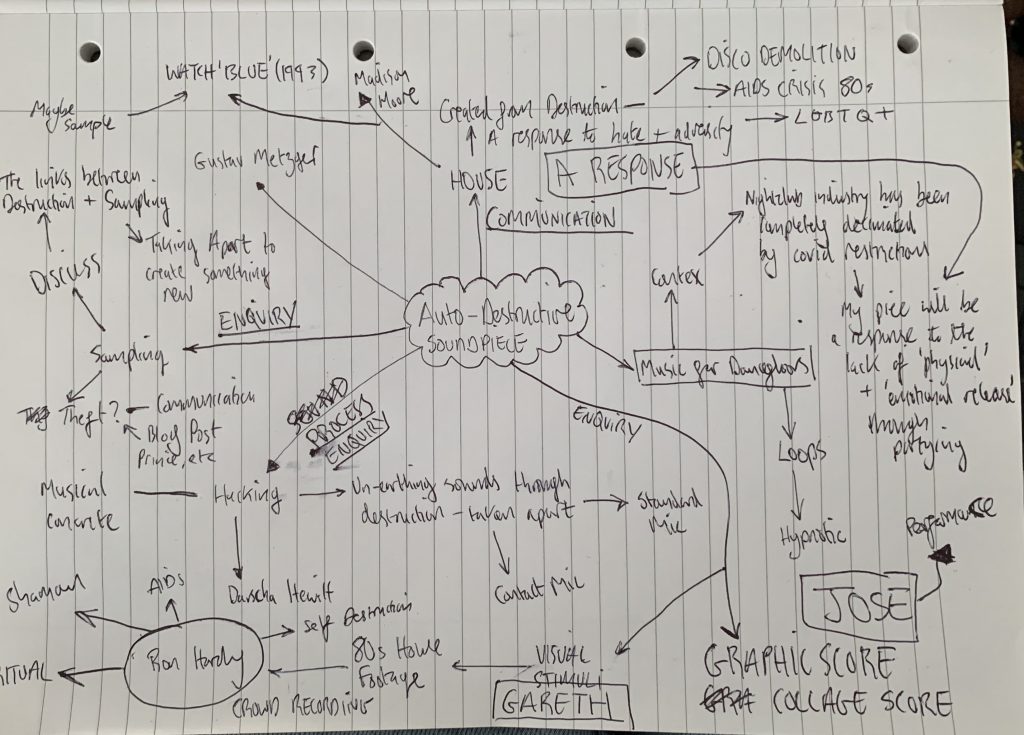 WATCH 'BLUE' (1993)
Maybe
Sample
Madison
Moore
Created from Destruction
A response to hate + adversity
DISCO DEMOLITION
AIDS CRISIS 80s
LGBTQ+
A RESPONSE
HOUSE
COMMUNICATION
Gustav Metzger
The links between
Destruction + Sampling
Taking Apart to
create something
new
DISCUSS
ENQUIRY
Sampling
Theft? - Communication
Blog Post
Prince, etc
Auto-Destructive
SOUNDPIECE
Nightclub industry has been
completely decimated
by covid restriction
Contex
My piece will be
a response to the
lack of 'physical'
+ 'emotional release'
through
partying
Music for Dancefloors
LOOPS
Hypnotic
ENQUIRY
PROCESS
ENQUIRY
Musical
concrete
Hacking
Un-earthing sounds through
destruction - taken apart
Standard
Mic
Contact Mic
Darscha Hewitt
Shaman
AIDS
Self Destruction
Ron Hardy
RITUAL
80s House
Footage
CROWD RECORDING
VISUAL
STIMULI
GARETH
Performance
JOSE
GRAPHIC SCORE
COLLAGE SCORE